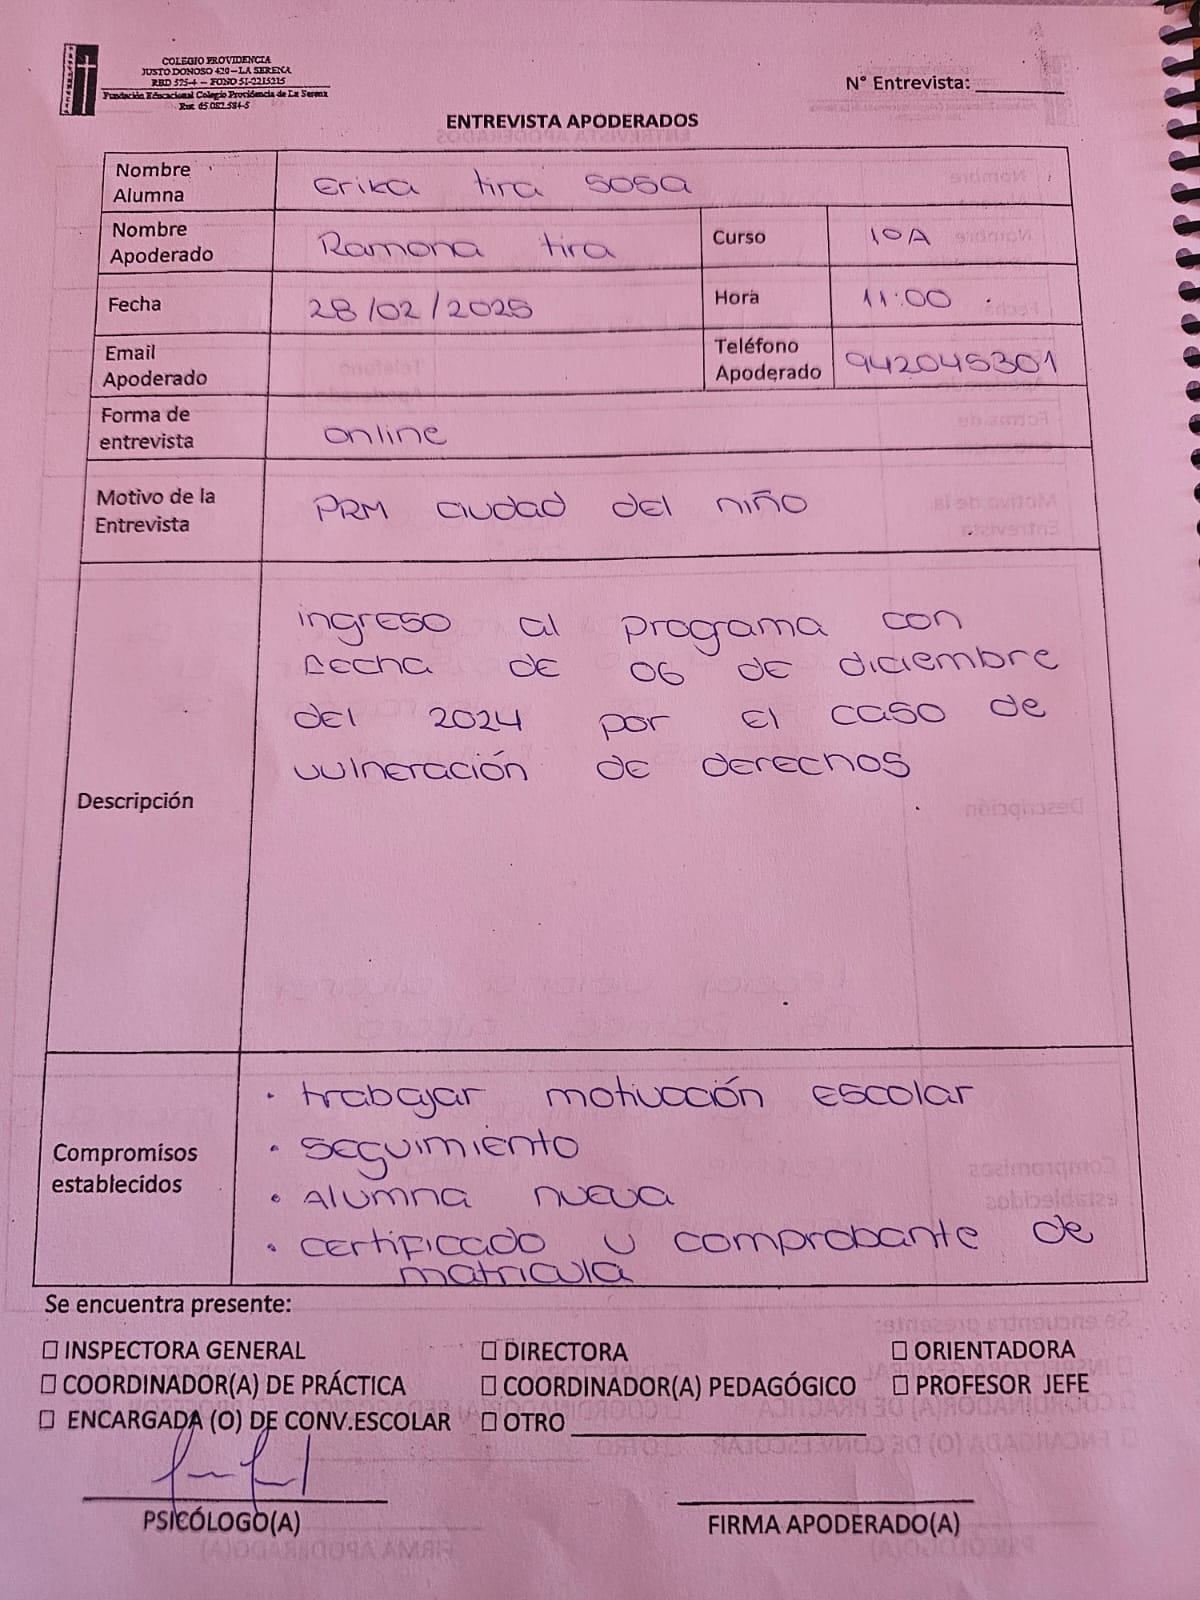 COLEGIO PROVIDENCIA
JUSTO DONOSO 420 – LA SERENA
RBD 575-4 – FONO 51-2215215
Fundación Educacional Colegio Providencia de La Serena
Rut: 65.082.584-5
N° Entrevista:
ENTREVISTA APODERADOS
Nombre Alumna
Erika tira sosa
Nombre Apoderado
Ramona tira
Curso
10A
Fecha
28/02/2025
Hora
11:00
Email Apoderado
Teléfono Apoderado
942045301
Forma de entrevista
online
Motivo de la Entrevista
PRM ciudad del niño
Descripción
ingreso al programa con
fecha de 06 de diciembre
del 2024 por el caso de
vulneración de derechos
Compromisos establecidos
• trabajar motivación escolar
• seguimiento
• Alumna nueva
• certificado u comprobante de
matricula
Se encuentra presente:
☐ INSPECTORA GENERAL ☐ DIRECTORA ☐ ORIENTADORA
☐ COORDINADOR(A) DE PRÁCTICA ☐ COORDINADOR(A) PEDAGÓGICO ☐ PROFESOR JEFE
☐ ENCARGADA (O) DE CONV.ESCOLAR ☐ OTRO
PSICÓLOGO(A)
FIRMA APODERADO(A)